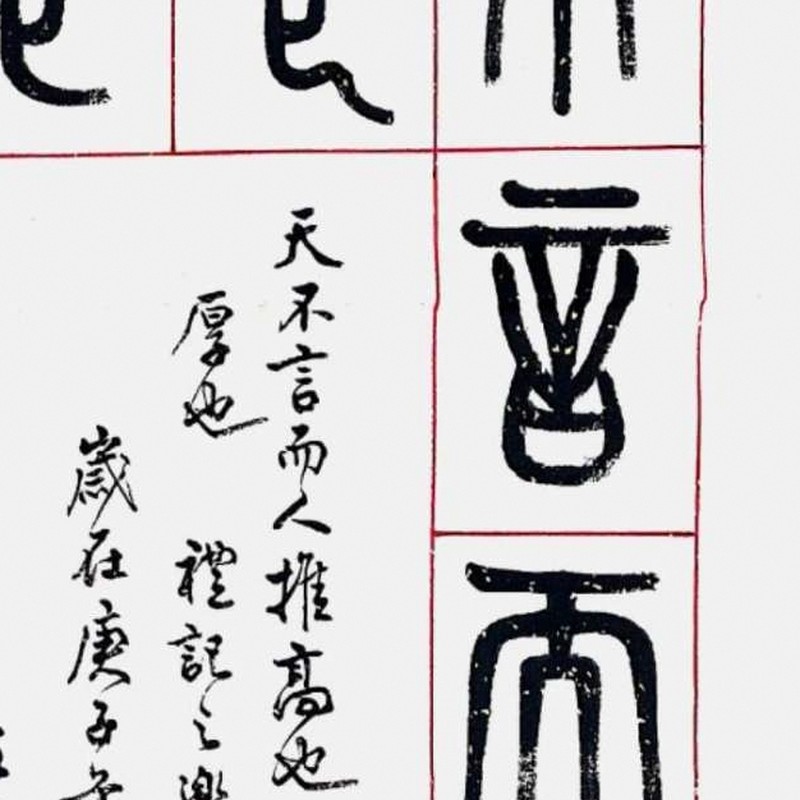 不言而
也
也
天不言而人推高也
厚也 禮記之樂
歲在庚子